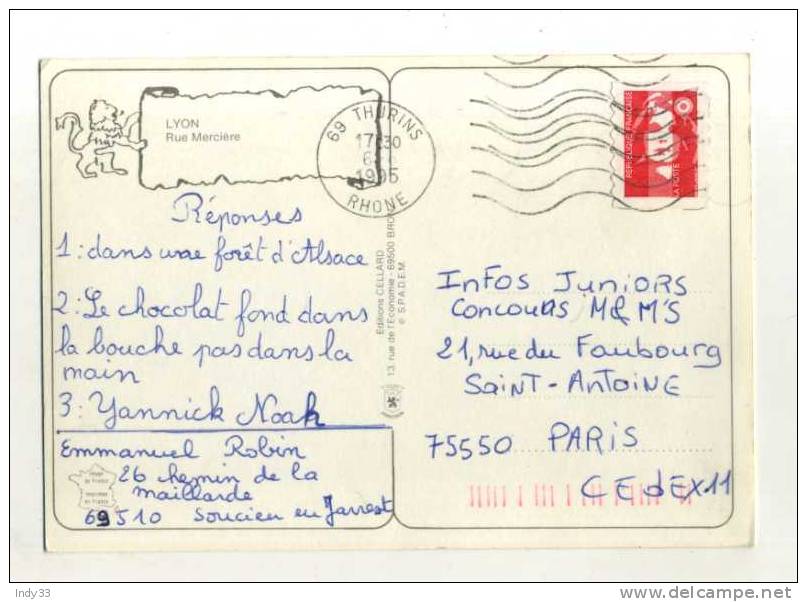 LYON
Rue Mercière
69 THURINS
17H30
1995
RHONE
REPUBLIQUE FRANCAISE
LA POSTE
Réponses
1: dans une forêt d'Alsace
2: Le chocolat fond dans
la bouche pas dans la
main
3: Yannick Noah
Emmanuel Robin
26 chemin de la
maillarde
69510 Soucieu en Jarrest
Image
de France
Imprimée
en France
Editions CELLARD
13, rue de l'Economie - 69500 BRON
© S.P.A.D.E.M.
InFos Juniors
Concours M&M'S
21, rue du Faubourg
Saint-Antoine
75550 PARIS
CEdEX11
Indy33
delcampe.net